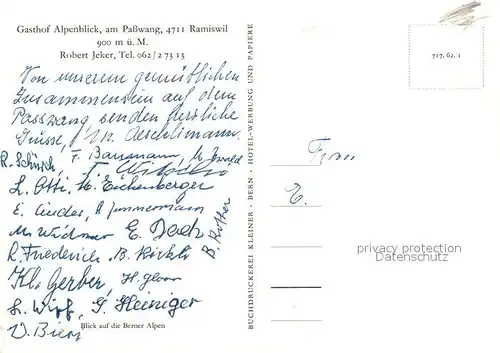 Gasthof Alpenblick, am Paßwang, 4711 Ramiswil
900 m ü. M.
Robert Jeker, Tel. 062/2 73 13
Von unserem gemütlichen
Zusammensein auf dem
Passwang senden herzliche
Grüsse, Aeschlimann
R. Schürch, F. Baumann,
L. Otti, H. Eichenberger
E. Linder, A. Zimmermann
M. Widmer E. Dach B. Rother
R. Friederich, B. Bickli
Kl. Gerber, H.
L. Wirf, G. Heiniger
Blick auf die Berner Alpen
BUCHDRUCKEREI KLEINER · BERN · HOTEL-WERBUNG UND PAPIERE
717.62.1
Frau
E.
privacy protection
Datenschutz